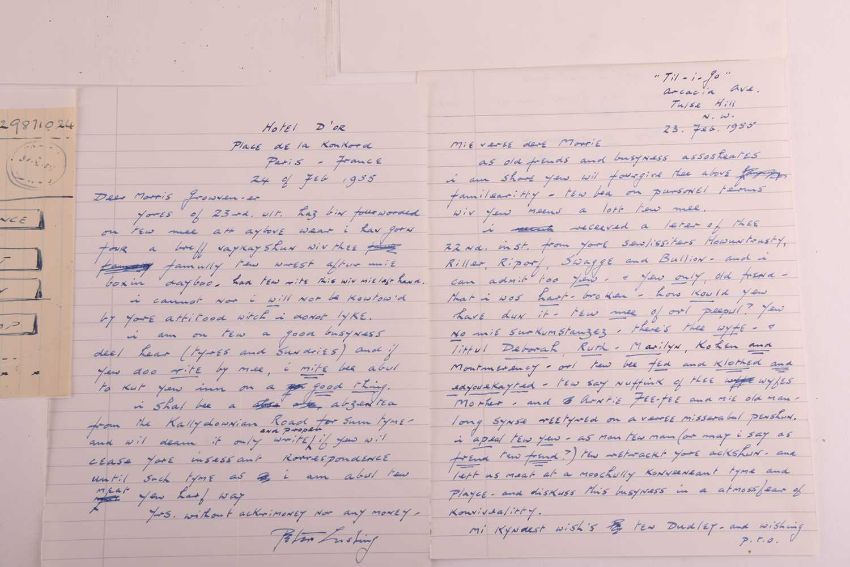 29871024
NCE
T
Y
OP
Hotel D'or
Place de la Konkord
Paris - France
24 of Feb 1955
Deer Morris
yores of 23rd. ult. haz bin fourworded
on tew mee att aybove wear i hav gorn
four a breff vaykayshun wiv thee
famully tew wrest aftur mie
boxin dayboo. had tew rite this wiv mie left hand.
i cannot nor i will not be kowtow'd
by yore attitood witch i donot lyke.
i am on tew a good busyness
deel hear (tyres and Sundries) and if
yew doo rite by mee, i mite bee abul
to kut yew inn on a good thing.
i shal bee a abzentea
from the Kallydownian Road for sum tyme -
and wil deam it only write and proper if yew wil
cease yore insessant korrespondence
until such tyme as i am abul tew
meat yew harf way
Yrs. without ackrimoney nor any money -
"Til-i-go"
Arcacia Ave.
Tulse Hill
N.W.
23. Feb. 1955
Mie verse dere Morrie
as old frends and busyness assosheates
i am shore yew wil fourgive thee above
familearitty - tew bea on pursonel terms
wiv yew meens a lott tew mee.
i received a leter of thee
22nd. inst. from yore sewlissiters Howuntrusty,
Riller, Riporf, Swagge and Bullion - and i
can admit too yew - & yew only, old frend -
that i wos hart-broken - how kould yew
have dun it - tew mee of orl peepul? Yew
No mie surkumstanzez - there's thee wyfe - &
littul Deborah, Ruth - Marilyn, Kohen and
Montmerency - orl tew bee fed and klothed and
edyoukayted - tew say nuffink of thee wyfes
Mother - and Arntie Fee-fee and mie old man -
long synse reetyred on a verree misserabul penshun.
i apeal tew yew - as man tew man (or may i say as
frend tew frend?) tew retrackt yore ackshun - and
lett us meat at a mootchully konvenneant tyme and
playce - and diskuss this busyness in a atmossfear of
konnivealitty.
Mi kyndest wish's tew Dudley - and wishing
P.T.O.